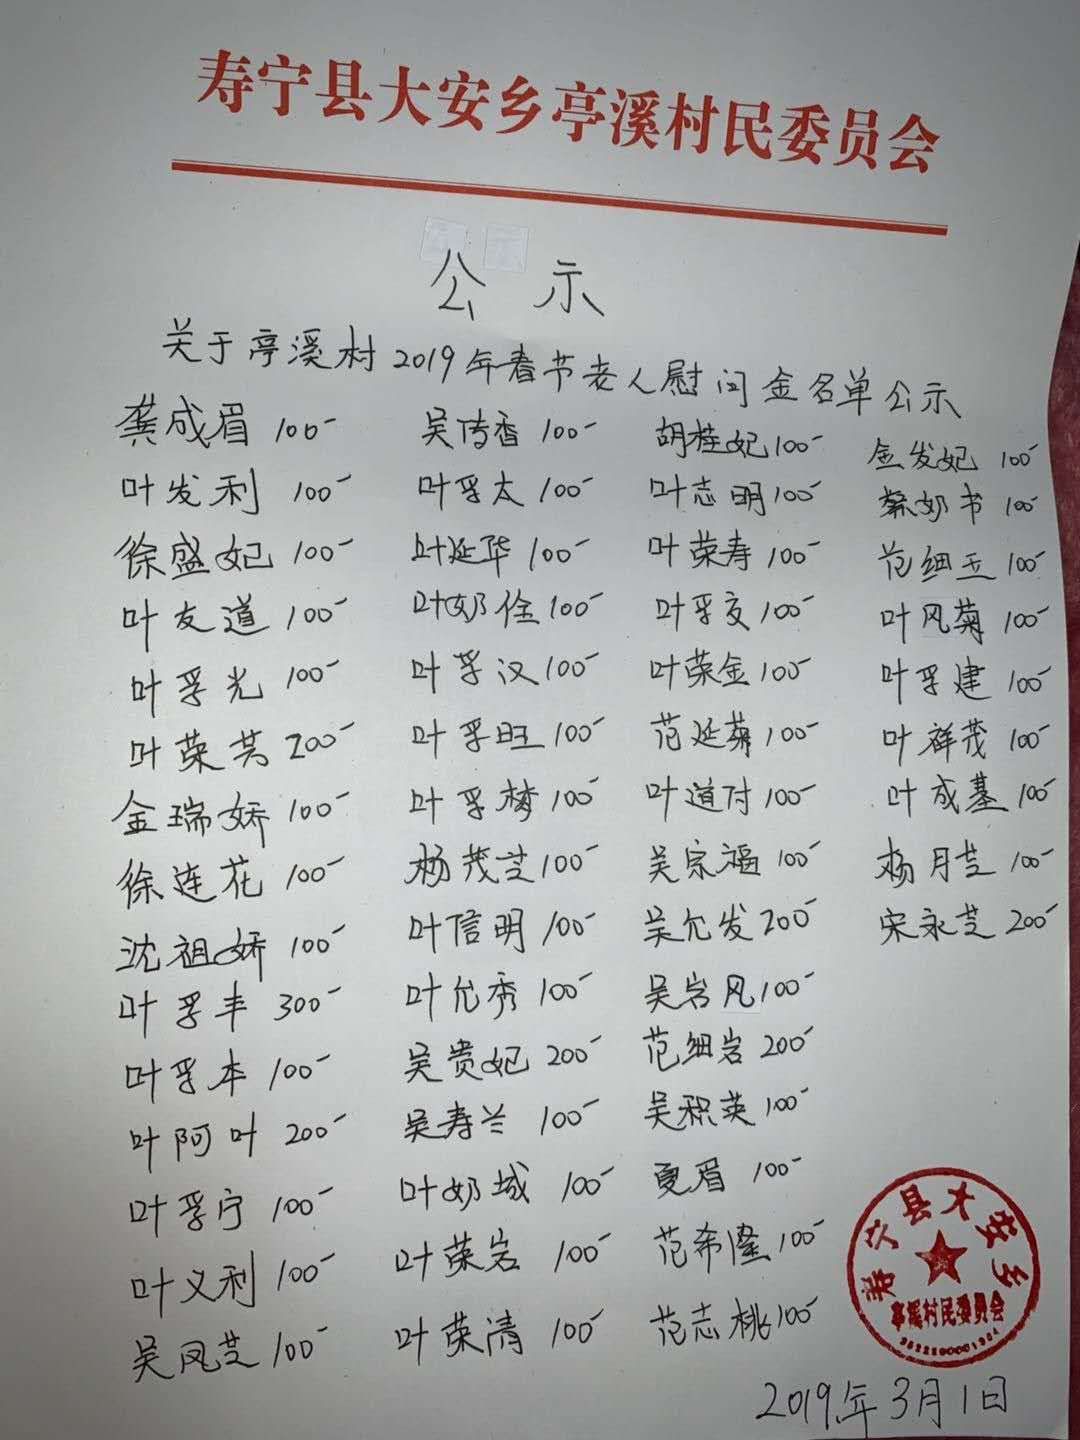 寿宁县大安乡亭溪村民委员会
公示
关于亭溪村2019年春节老人慰问金名单公示
龚成眉 100 吴传香 100 胡桂妃 100 金发妃 100
叶发利 100 叶孚太 100 叶志明 100 蔡奶书 100
徐盛妃 100 叶延华 100 叶荣寿 100 范细玉 100
叶友道 100 叶奶佺 100 叶孚交 100 叶风菊 100
叶孚光 100 叶孚汉 100 叶荣金 100 叶孚建 100
叶荣芸 200 叶孚旺 100 范延菊 100 叶祥茂 100
金瑞娇 100 叶孚梅 100 叶道付 100 叶成基 100
徐连花 100 杨茂芝 100 吴宗福 100 杨月芝 100
沈祖娇 100 叶信明 100 吴允发 200 宋永芝 200
叶孚丰 300 叶允秀 100 吴岩风 100
叶孚本 100 吴贵妃 200 范细岩 200
叶阿叶 200 吴寿兰 100 吴积英 100
叶孚宁 100 叶奶城 100 夏眉 100
叶义利 100 叶荣岩 100 范希隆 100
吴凤芝 100 叶荣清 100 范志桃 100
寿宁县大安乡
亭溪村民委员会
2019年3月1日